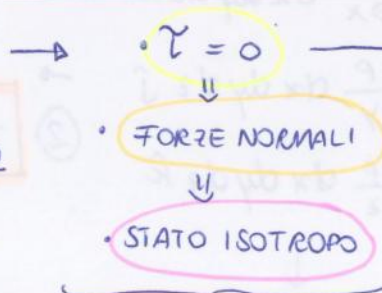 → · τ = 0
⇓
· FORZE NORMALI
⇓
· STATO ISOTROPO